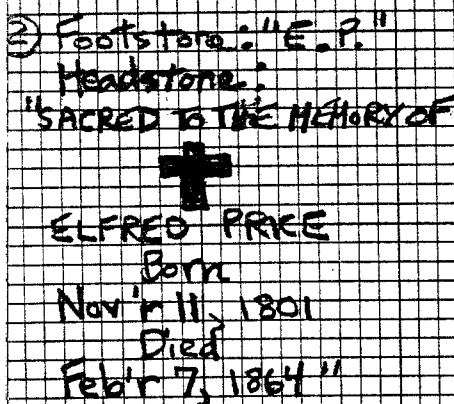 ② Footstone: "E.P."
Headstone:
"SACRED TO THE MEMORY OF
ELFRED PRICE
Born
Nov'r 11, 1801
Died
Feb'r 7, 1864"